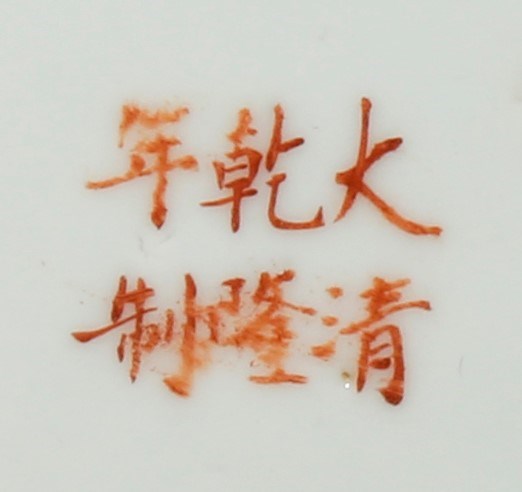 大清
乾隆
年制